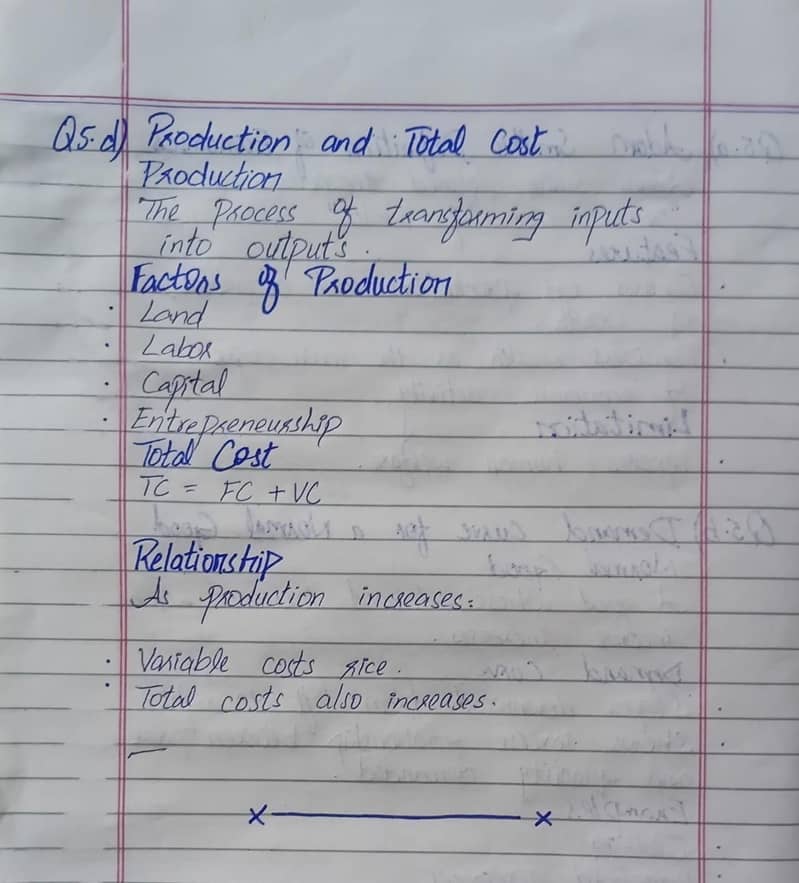 Q5.d) Production and Total Cost
Production
The Process of transforming inputs
into outputs.
Factors of Production
· Land
· Labor
· Capital
· Entrepreneurship
Total Cost
TC = FC + VC
Relationship
As production increases:
· Variable costs rice.
· Total costs also increases.